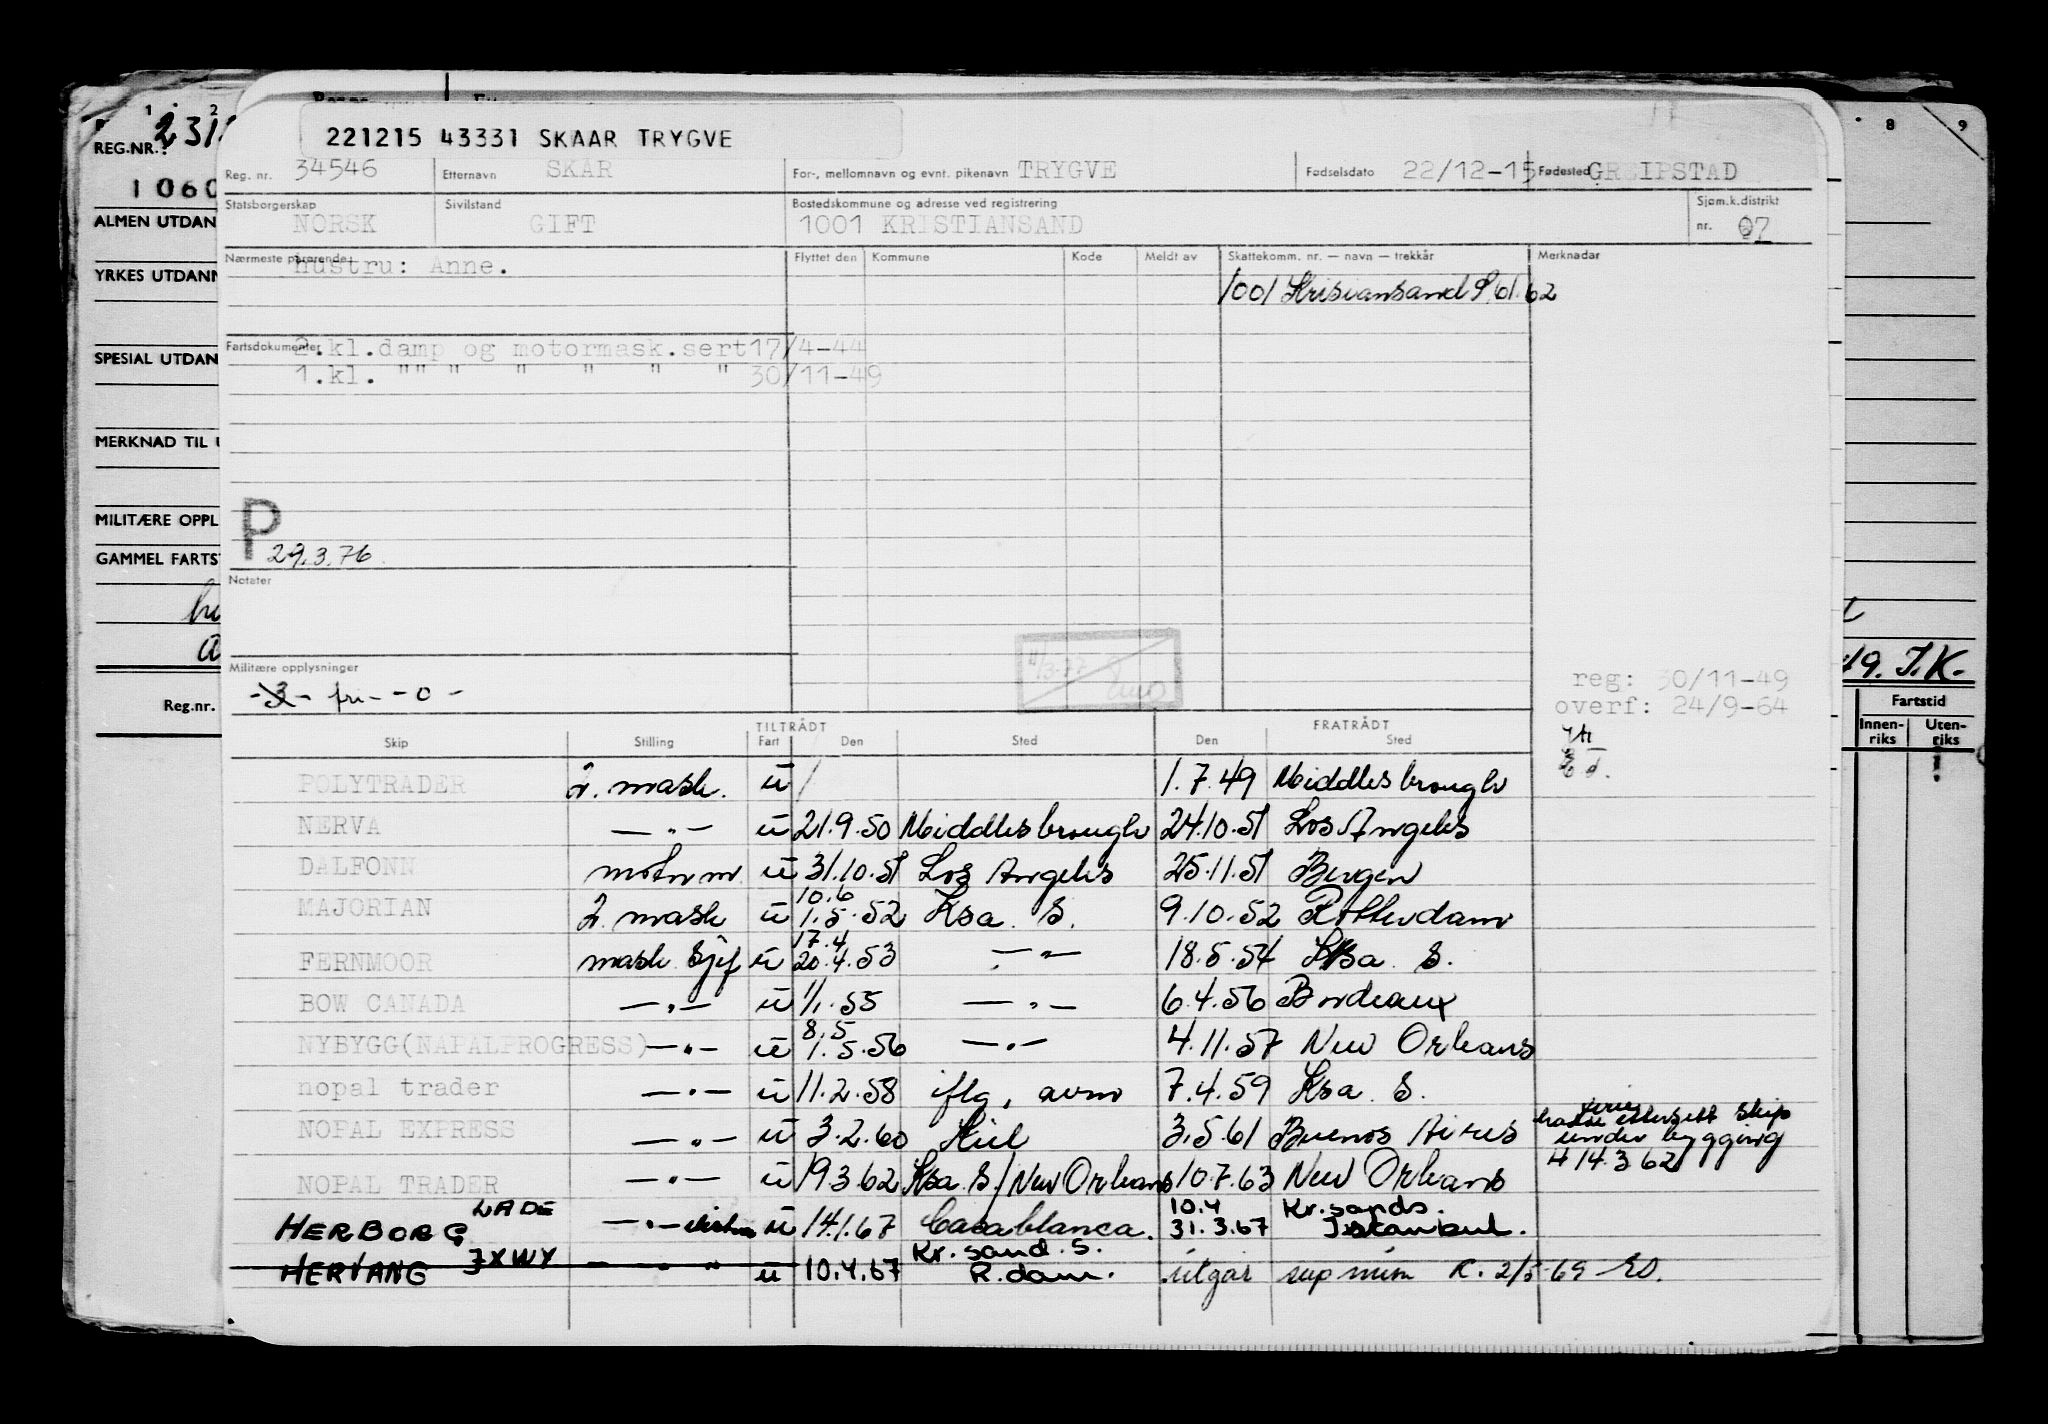 221215 43331 SKAAR TRYGVE
Reg. nr. 34546 Etternavn SKAR For-, mellomnavn og evnt. pikenavn TRYGVE Fødselsdato 22/12-15 Fødested GREIPSTAD
Statsborgerskap Sivilstand Bostedskommune og adresse ved registrering Sjøm.k.distrikt
NORSK GIFT 1001 KRISTIANSAND nr. 07
Nærmeste pårørende Flyttet den Kommune Kode Meldt av Skattekomm. nr. — navn — trekkår Merknadar
Hustru: Anne.
1001 Kristiansand S. 01.62
Fartsdokumenter 2.kl.damp og motormask.sert 17/4-44
1.kl. "" " " " " " 30/11-49
P
29.3.76.
Notater
Militære opplysninger
-3- fri- -0-
reg: 30/11-49
overf: 24/9-64
TILTRÅDT FRATRÅDT
Skip Stilling Fart Den Sted Den Sted
POLYTRADER 2. mask. u / 1.7.49 Middlesbrough
NERVA —"— u 21.9.50 Middlesbrough 24.10.51 Los Angeles
DALFONN motorm u 31.10.51 Los Angeles 25.11.51 Bergen
10.6
MAJORIAN 2. mask u 1.5.52 Ksa. S. 9.10.52 Rotterdam
17.4
FERNMOOR mask. sjef u 20.4.53 —"— 18.5.54 Ksa. S.
BOW CANADA —"— u 1/1.55 —"— 6.4.56 Bordeaux
8.5
NYBYGG(NAPALPROGRESS) —"— u 1.5.56 —"— 4.11.57 New Orleans
nopal trader —"— u 11.2.58 iflg. avm 7.4.59 Ksa. S.
NOPAL EXPRESS —"— u 3.2.60 Kiel 3.5.61 Buenos Aires
ferie
hadde ettersett skip
under bygging
14.3.62
NOPAL TRADER —"— u 19.3.62 Ksa. S/New Orleans 10.7.63 New Orleans
LADE 10.4 Kr.sands.
HERBORG —"— u 14.1.67 Casablanca. 31.3.67 Istanbul.
JXWY Kr.sand.S.
HERVANG — " " u 10.4.67 R.dam. utgår sup mim R. 2/5-69
1 2
REG.NR.: 231
1060
ALMEN UTDAN
YRKES UTDANN
SPESIAL UTDAN
MERKNAD TIL U
MILITÆRE OPPL
GAMMEL FARTS
Reg.nr.
8 9
49. J.K.
Fartstid
Innen- Uten-
riks riks